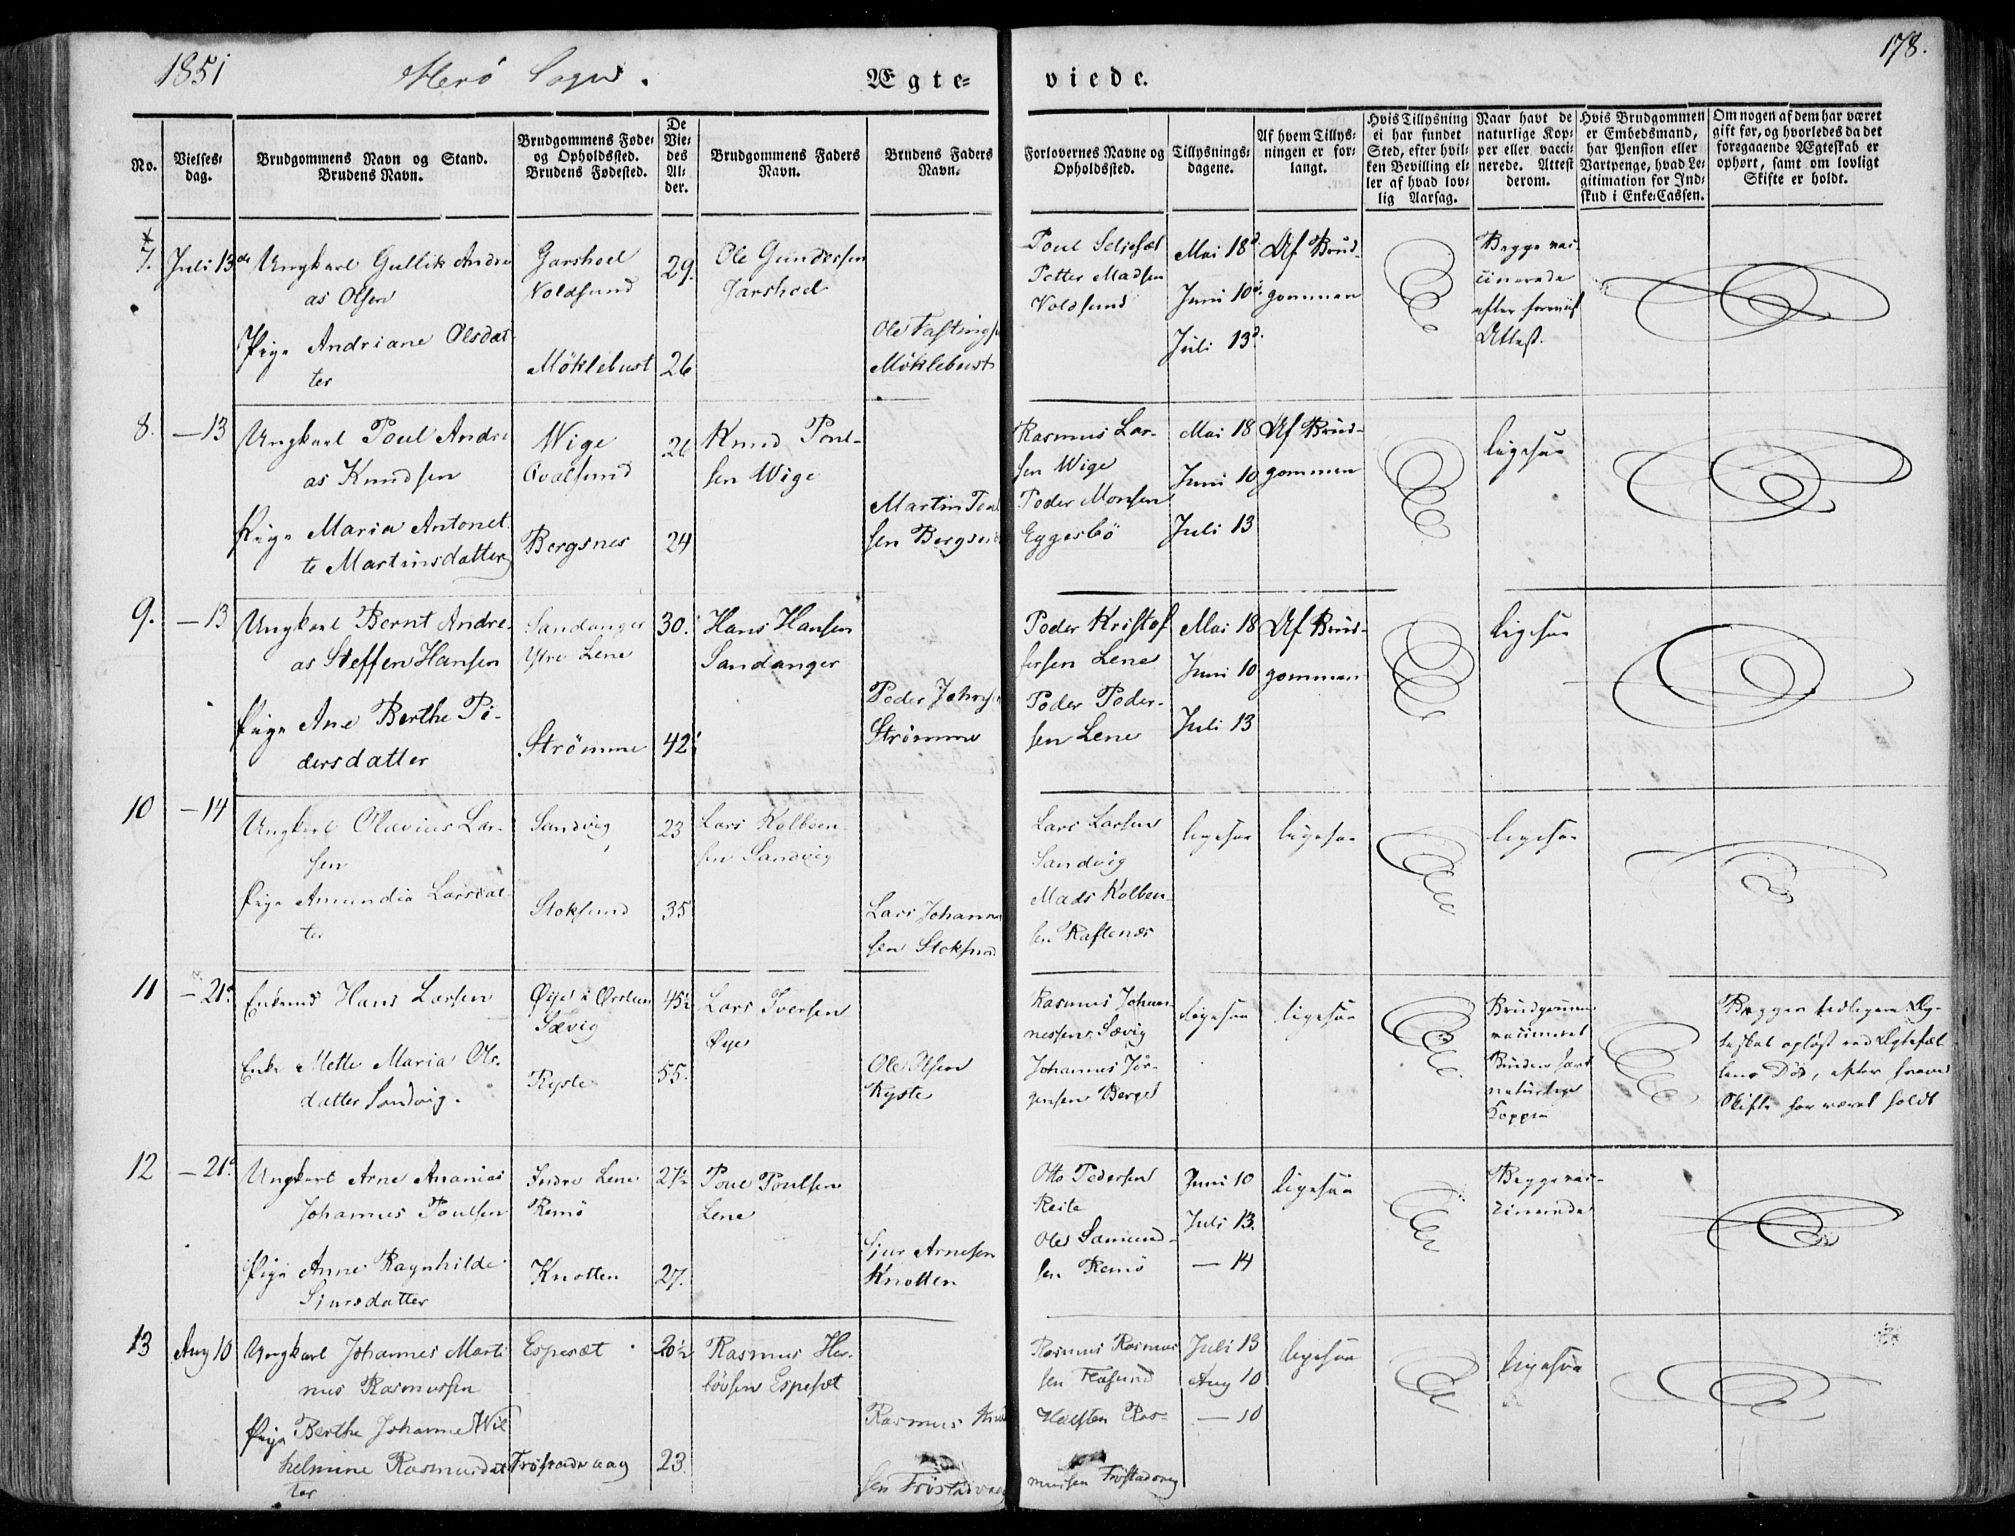 1851
Herö Sogn.
Ægte-
viede.
178.
No.
Vielses-
dag.
Brudgommens Navn og Stand.
Brudens Navn.
Brudgommens Føde-
og Opholdssted.
Brudens Fødested.
De
Vie-
des
Al-
der.
Brudgommens Faders
Navn.
Brudens Faders
Navn.
Forlovernes Navne og
Opholdssted.
Tillysnings-
dagene.
Af hvem Tillys-
ningen er for-
langt.
Hvis Tillysning
ei har fundet
Sted, efter hvil-
ken Bevilling el-
ler af hvad lov-
lig Aarsag.
Naar havt de
naturlige Kop-
per eller vacci-
nerede. Attest
derom.
Hvis Brudgommen
er Embedsmand,
har Pension eller
Vartpenge, hvad Le-
gitimation for Ind-
skud i Enke-Cassen.
Om nogen af dem har været
gift før, og hvorledes da det
foregaaende Ægteskab er
ophørt, samt om lovligt
Skifte er holdt.
7.
Juli 13de
Ungkarl Gullik Andre
as Olsen
Pige Andriane Olsdat-
ter
Garshoel
Voldsund
Möklebust
29.
26
Ole Gundersen
Garshoel
Ole Fastings
Möklebust
Poul Seljesæt
Petter Madsen
Voldsund
Mai 18d
Juni 10d.
Juli 13d.
Af Brud-
gommen
Begge vac-
cinerede
efter foreviist
Attest.
8.
– 13
Ungkarl Poul Andre
as Knudsen
Pige Maria Antonet
te Martinsdatter
Wige
Qvalsund
Bergsnes
26
24
Knud Poul-
sen Wige
Martin Poul
sen Bergsnes
Rasmus Lar-
sen Wige
Peder Monsen
Eggesbö
Mai 18
Juni 10
Juli 13
Af Brud-
gommen
ligesaa
9.
– 13
Ungkarl Bernt Andre-
as Steffen Hansen
Pige Ane Berthe Pe-
dersdatter
Sandanger
Ytre Lene
Strömme
30.
42
Hans Hansen
Sandanger
Peder Johns
Strömme
Peder Kristof
fersen Lene
Peder Peder-
sen Lene
Mai 18
Juni 10
Juli 13
Af Brud-
gommen
ligesaa
10
– 14
Ungkarl Olavius Lar-
sen
Pige Amundia Larsdat-
ter
Sandvig
Stoksund
23
35
Lars Kolbeen-
sen Sandvig
Lars Johanne
sen Stoksund
Lars Larsen
Sandvig
Mads Kolben-
sen Raftenæs
ligesaa
ligesaa
ligesaa
11
– 21d
Enkemd Hans Larsen
Enke Mette Maria Ols-
datter Sandvig.
Öije i Örsten
Sævig
Ryste
45½
55.
Lars Iversen
Öye
Ole Olsen
Ryste
Rasmus Johan-
nessen Sævig
Johannes Jör-
gensen Berge
ligesaa
ligesaa
Brudgommen
vaccineret
Bruden havt
naturlige
Kopper
Begges tidligere Æg-
teskab oplöst ved Ægtefæl-
lens Död, efter hvem
Skifte har været holdt
12
– 21d
Ungkarl Arne Ananias
Johannes Poulsen
Pige Anne Ragnhilde
Sjursdatter
Indre Lene
Remö
Knotten
27½
27.
Poul Poulsen
Lene
Sjur Arnesen
Knotten
Otto Pedersen
Reite
Ole Samund-
sen Remö
Juni 10
Juli 13.
– 14
ligesaa
Begge vac-
cinerede
13
Aug 10
Ungkarl Johannes Marti
nus Rasmussen
Pige Berthe Johanne Wil
helmine Rasmusdat
ter
Espesæt
Fröstadvaag
20½
23
Rasmus Her-
lövsen Espesæt
Rasmus Knud
sen Fröstadvaa
Rasmus Rasmus
sen Flusund
Halsten Ras-
mussen Fröstadvaag
Juli 13
Aug 10
– 10
ligesaa
ligesaa